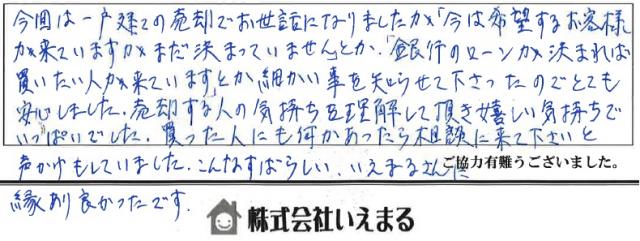 今回は一戸建ての売却でお世話になりましたが「今は希望するお客様
が来ていますがまだ決まっていません」とか、「銀行のローンが決まれば
買いたい人が来ています」とか細かい事を知らせて下さったのでとても
安心しました。売却する人の気持ちを理解して頂き嬉しい気持ちで
いっぱいでした。買った人にも何かあったら相談に来て下さいと
声かけもしていました。こんなすばらしい、いえまるさんに
ご協力有難うございました。
縁あり良かったです。
株式会社いえまる